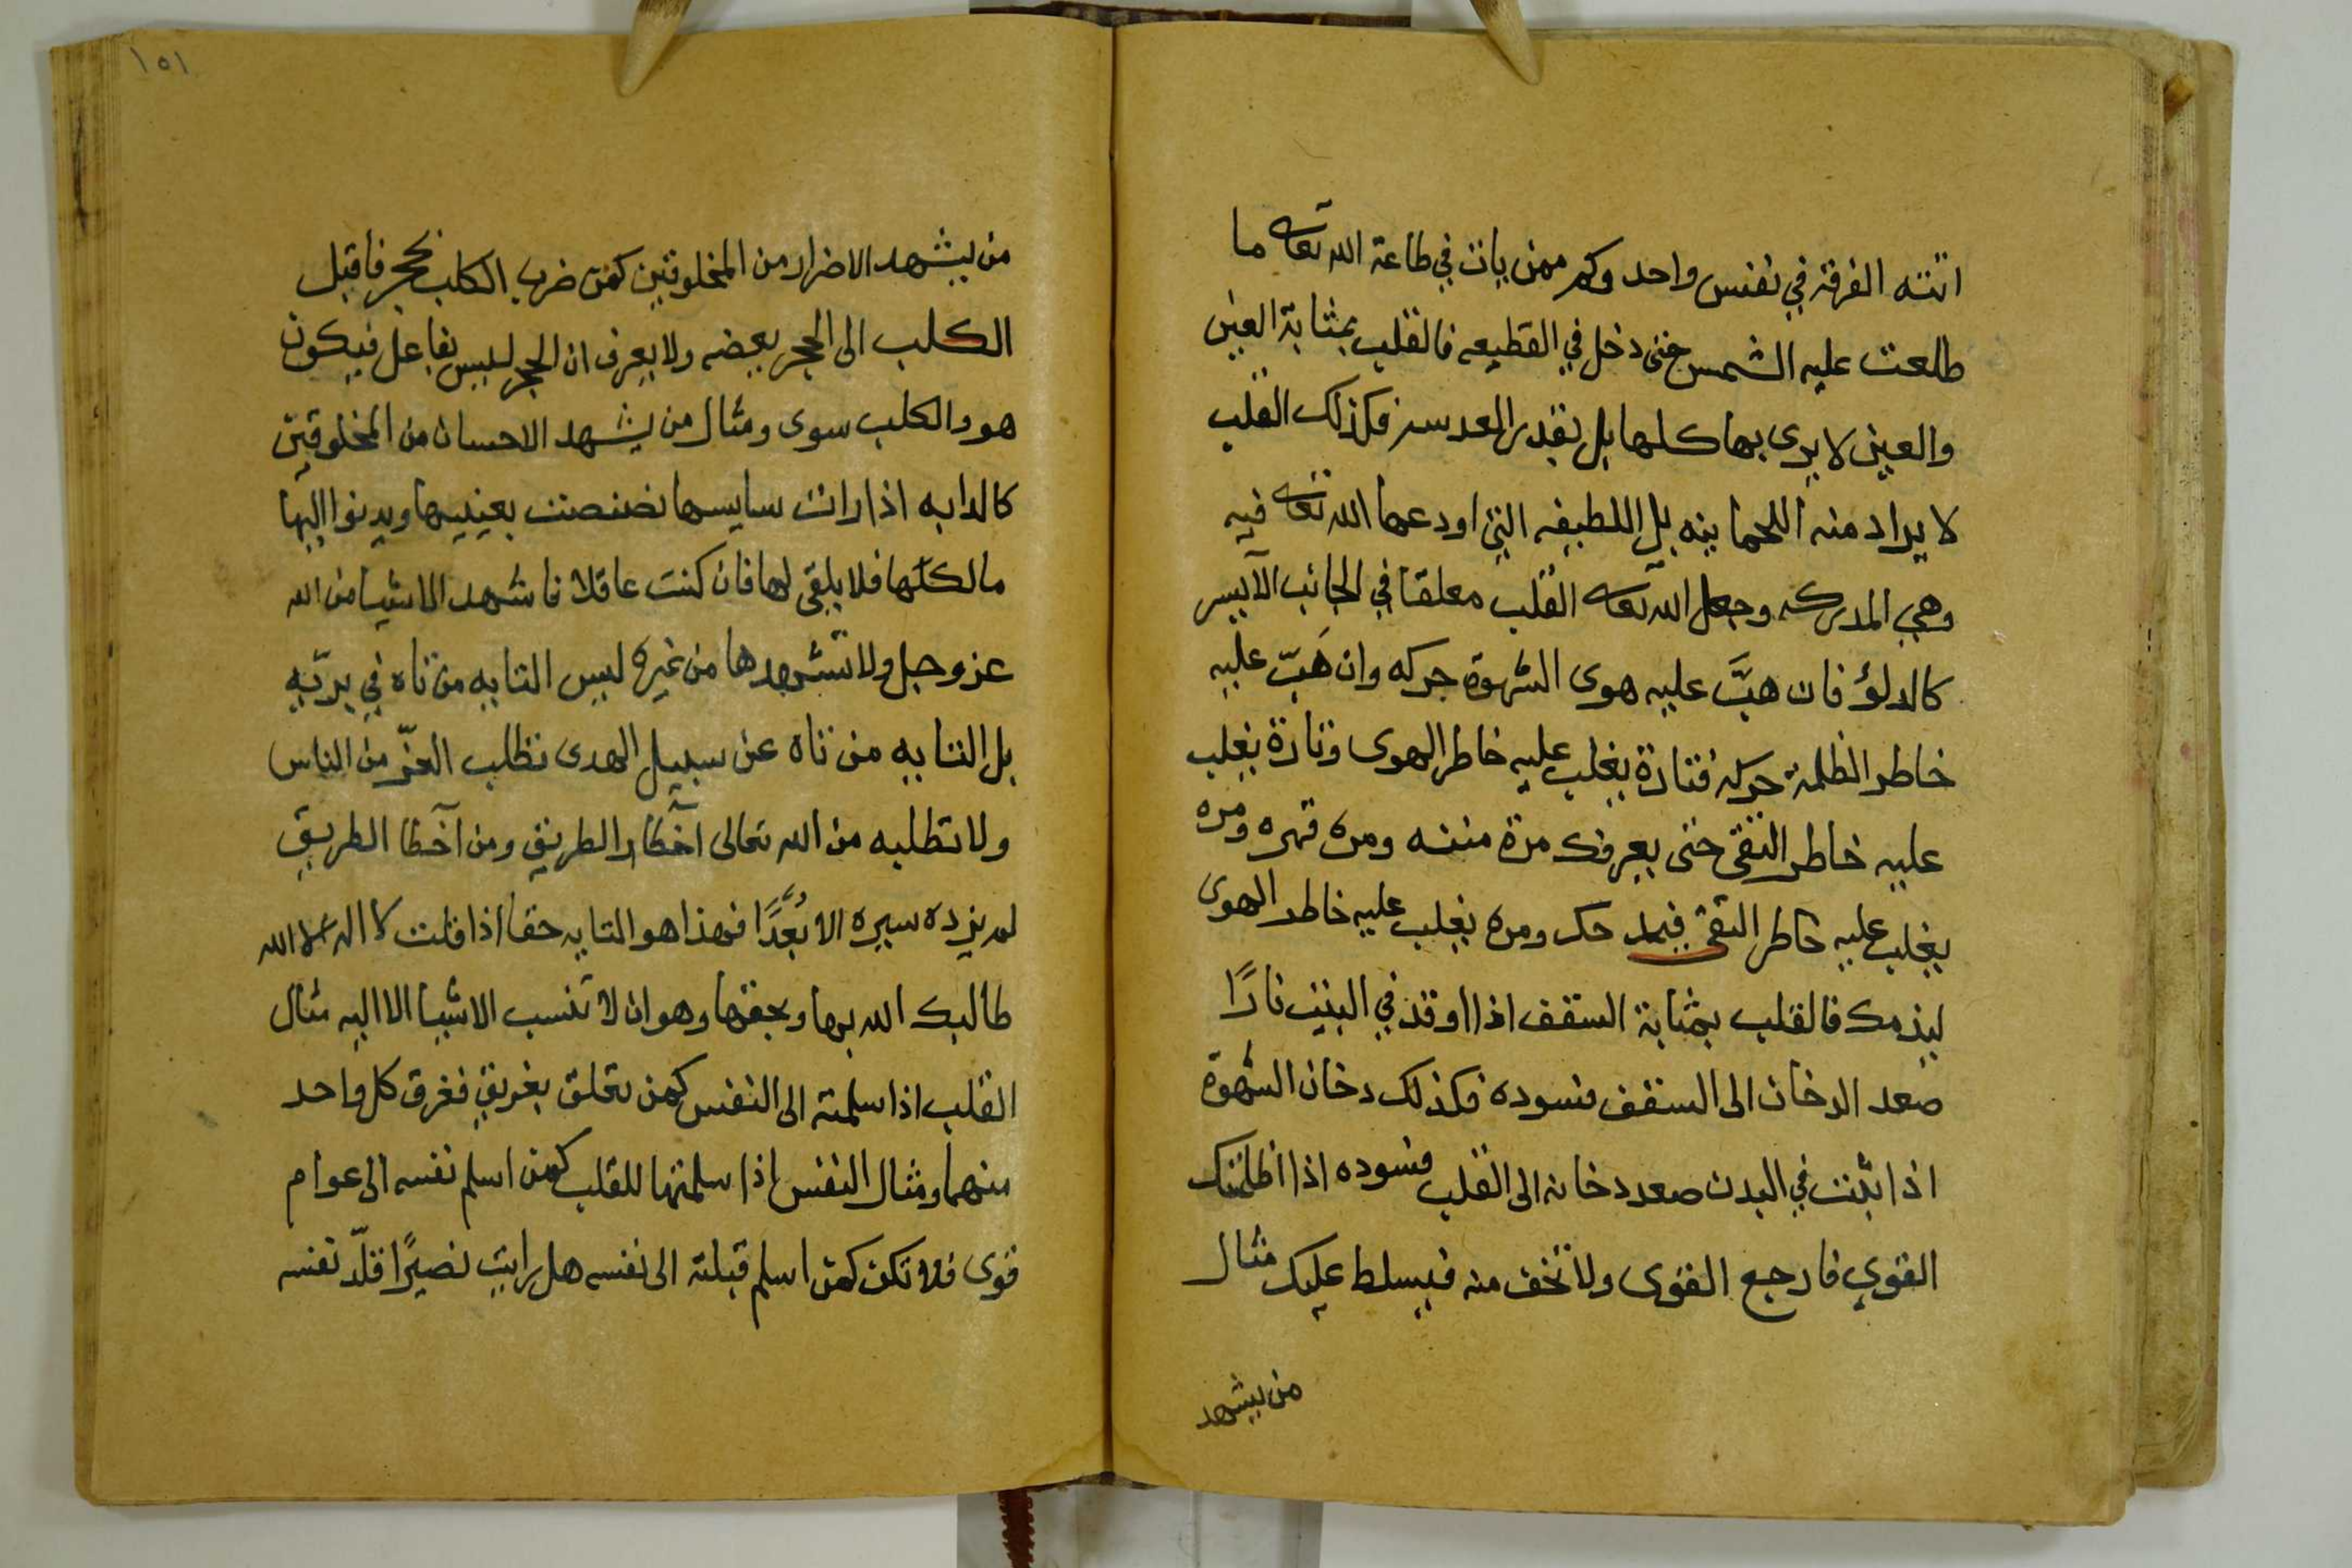 اتته الفرقة في نفس واحد وكم ممن بات في طاعة الله تعالى ما
طلعت عليه الشمس حتى دخل في القطيعه فالقلب بمثابة العين
والعين لا يرى بها كلها بل بقدر العدسة فكذلك القلب
لا يراد منه اللحمانيه بل اللطيفه التي اودعها الله تعالى فيه
وهي المدركه وجعل الله تعالى القلب معلقا في الجانب الايسر
كالدلؤ فان هبَّ عليه هوى الشهوة حركه وان هَبّ عليه
خاطر الظلمة حركه فتارة يغلب عليه خاطر الهوى وتارة يغلب
عليه خاطر التقى حتى يعرفك مرة مننه ومره قهره ومره
يغلب عليه خاطر التقى فيمدحك ومره يغلب عليه خاطر الهوى
ليذمك فالقلب بمثابة السقف اذا اوقد في البيت نارًا
صعد الدخان الى السقف فسوده فكذلك دخان الشهوة
اذا بنت في البدن صعد دخانه الى القلب فسوده اذا ظلمك
القوي فارجع القوى ولا تخف منه فيسلط عليك مثال
من يشهد
١٥١
من يشهد الاضرار من المخلوقين كمن ضرب الكلب بحجر فاقبل
الكلب الى الحجر يعضه ولا يعرف ان الحجر ليس بفاعل فيكون
هو والكلب سوى ومثال من يشهد الاحسان من المخلوقين
كالدابه اذا رات سايسها بصبصت بعينيها ويدنوا اليها
مالكها فلا يلقى لها فان كنت عاقلا فاشهد الاشيا من الله
عز وجل ولا تشهدها من غيره ليس التايه من تاه في بريّه
بل التايه من تاه عن سبيل الهدى تطلب العزّ من الناس
ولا تطلبه من الله تعالى اخطا الطريق ومن اخطا الطريق
لم يزده سيره الا بُعْدًا فهذا هو التايه حقا اذا قلت لا اله الا الله
طالبك الله بها وبحقها وهو ان لا تنسب الاشيا الا اليه مثال
القلب اذا سلمته الى النفس كمن تعلق بغريق فغرق كل واحد
منهما ومثال النفس اذا سلمتها للقلب كمن اسلم نفسه الى عوام
قوى فلا تكن كمن اسلم قبلته الى نفسه هل رايت بصيرًا قلّد نفسه